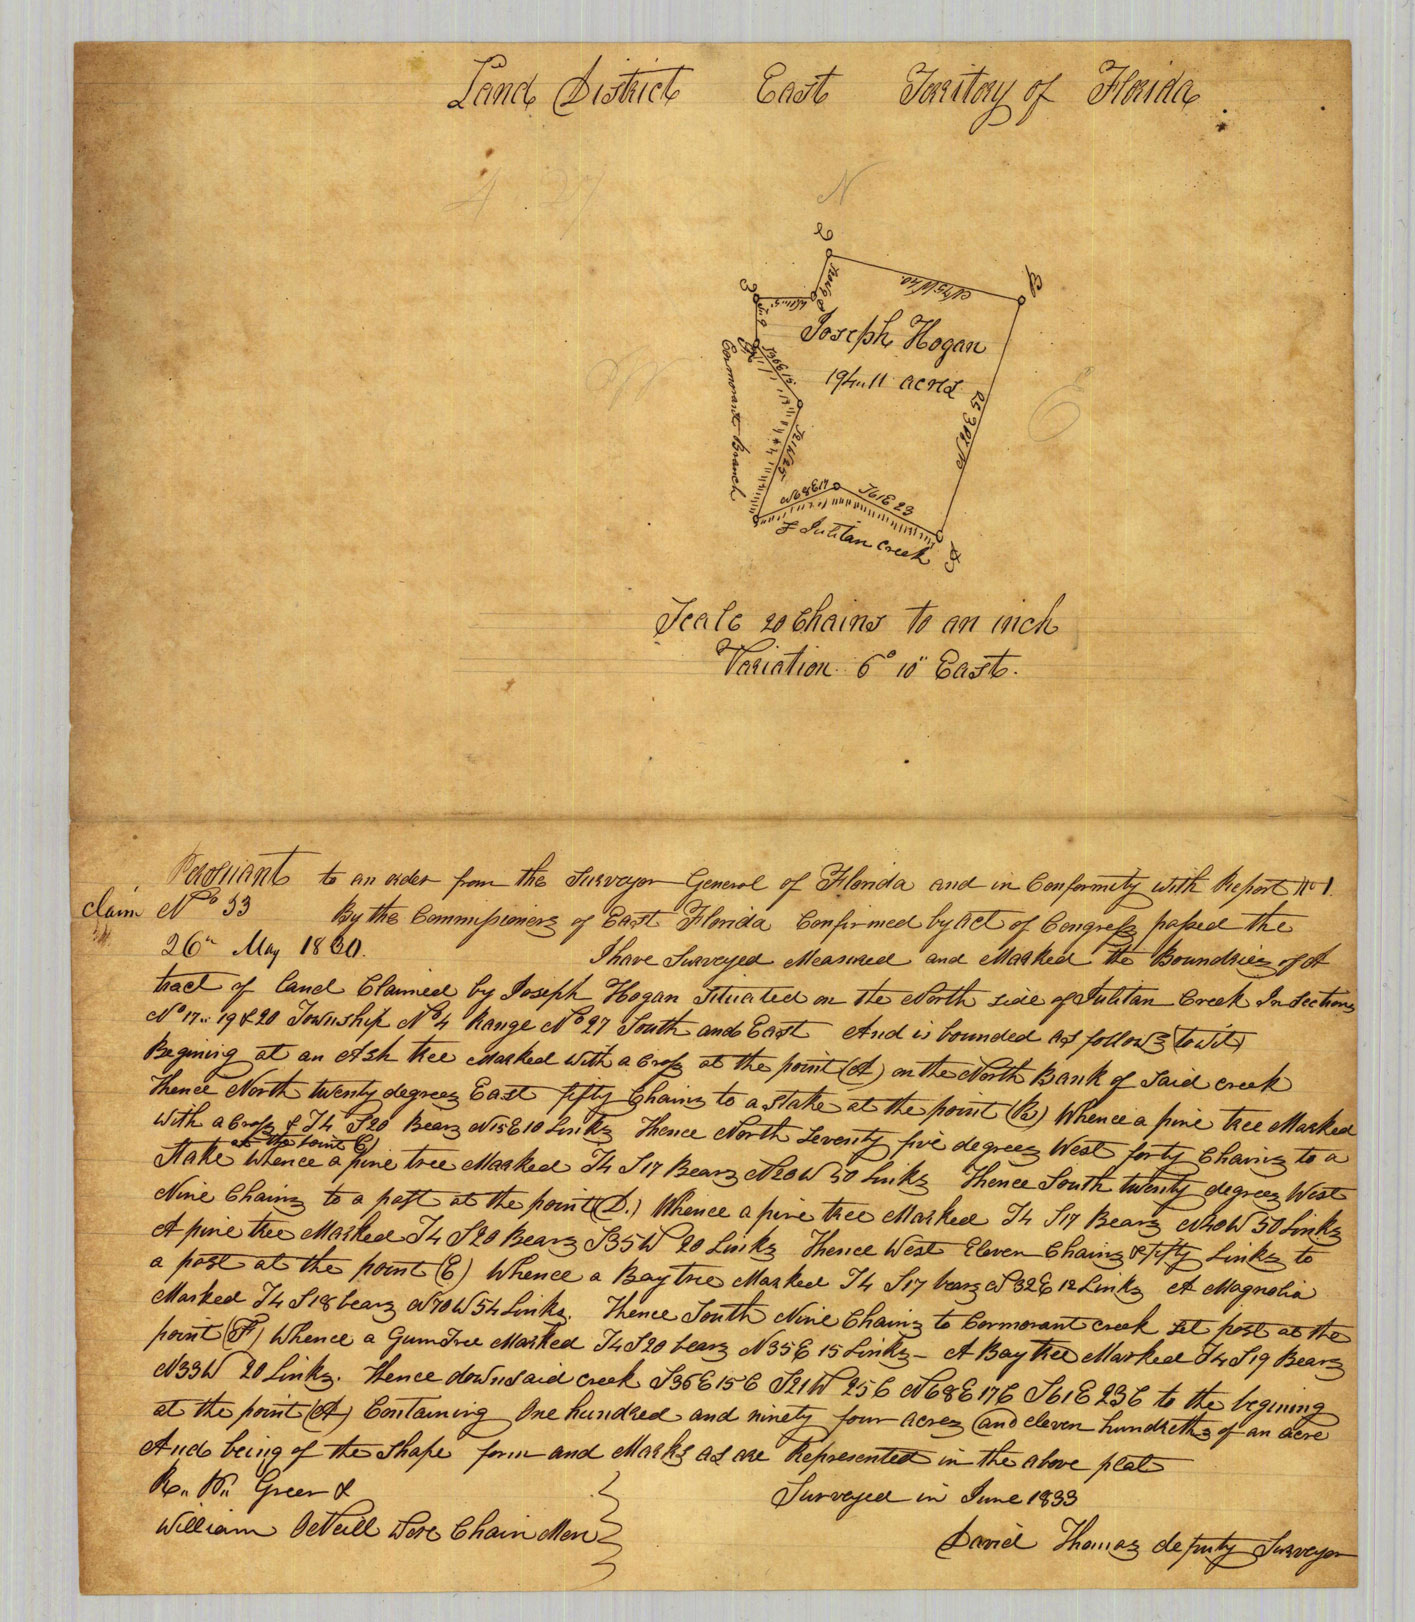 Land District East Territory of Florida
N
W
E
N75W40
Joseph Hogan
194..11 acres
S36E15
S21W25
N68E17
S61E23
Cormorant Branch
Julitan Creek
Scale 20 Chains to an inch
Variation 6° 10" East.
Persuant to an order from the Surveyor General of Florida and in Conformity with Report No 1.
Claim No 33 By the Commissioners of East Florida Confirmed by act of Congress passed the
26th May 1830. I have Surveyed Measured and Marked the Boundries of A
tract of land Claimed by Joseph Hogan Situated on the North side of Julitan Creek In Sections
No 17.. 19 & 20 Township No 4 Range No 27 South and East And is bounded as follows (to wit)
Begining at an Ash tree Marked with a Cross at the point (A) on the North Bank of said creek
Thence North twenty degrees East fifty Chains to a stake at the point (B) Whence a pine tree Marked
with a Cross & T4 S20 Bears N15E10 Links Thence North Seventy five degrees West forty Chains to a
at the point C)
Stake Whence a pine tree Marked T4 S17 Bears N20W 50 Links Thence South twenty degrees West
Nine Chains to a post at the point (D.) Whence a pine tree Marked T4 S17 Bears N40W 50 Links
A pine tree Marked T4 S20 Bears S35W 20 Links Thence West Eleven Chains & fifty Links to
a post at the point (E) Whence a Bay tree Marked T4 S17 bears N32E 12 Links A Magnolia
Marked T4 S18 bears N70W 54 Links. Thence South Nine Chains to Cormorant creek set post at the
point (F) Whence a Gum Tree Marked T4 S20 bears N35E 15 Links - A Bay tree Marked T4 S19 Bears
N33W 20 Links. Thence down said creek S36E15C S21W 25C N68E17C S61E23C to the begining
at the point (A) Containing One hundred and ninety four acres and eleven hundreths of an acre
And being of the shape form and Marks as are Represented in the above plat
R.. W.. Green & Surveyed in June 1833
William ONeill Were Chain Men David Thomas deputy Surveyor